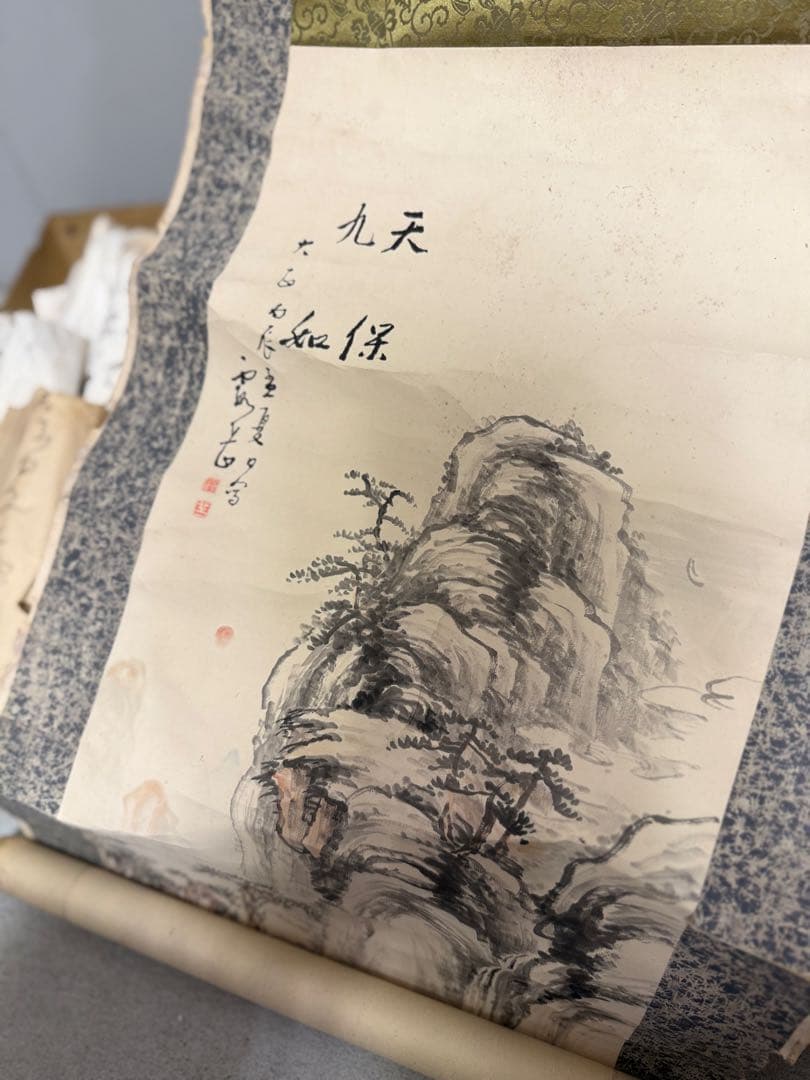 天保
九如
大正丙辰孟夏日写